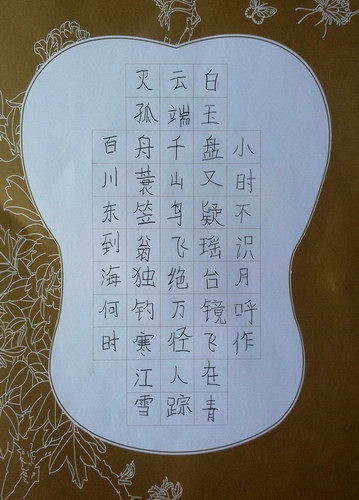 小时不识月呼作
白玉盘又疑瑶台镜飞在青
云端千山鸟飞绝万径人踪
灭孤舟蓑笠翁独钓寒江雪
百川东到海何时